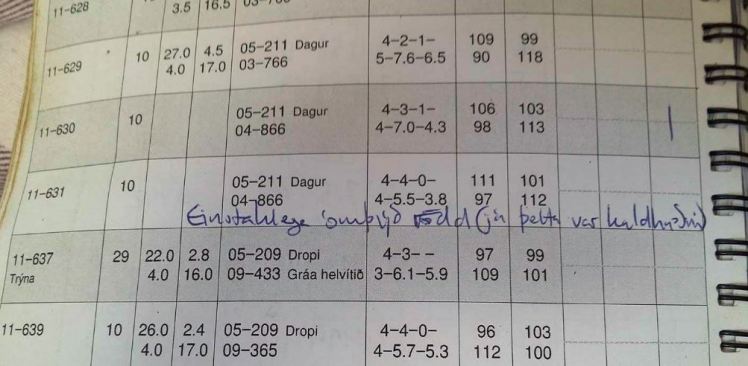 11-628 3.5 16.5
11-629 10 27.0 4.5 05-211 Dagur 4-2-1- 109 99
4.0 17.0 03-766 5-7.6-6.5 90 118
11-630 10 05-211 Dagur 4-3-1- 106 103
04-866 4-7.0-4.3 98 113
11-631 10 05-211 Dagur 4-4-0- 111 101
04-866 4-5.5-3.8 97 112
þetta var kaldhæðni
11-637 29 22.0 2.8 05-209 Dropi 4-3- - 97 99
Trýna 4.0 16.0 09-433 Gráa helvítið 3-6.1-5.9 109 101
11-639 10 26.0 2.4 05-209 Dropi 4-4-0- 96 103
4.0 17.0 09-365 4-5.7-5.3 112 100